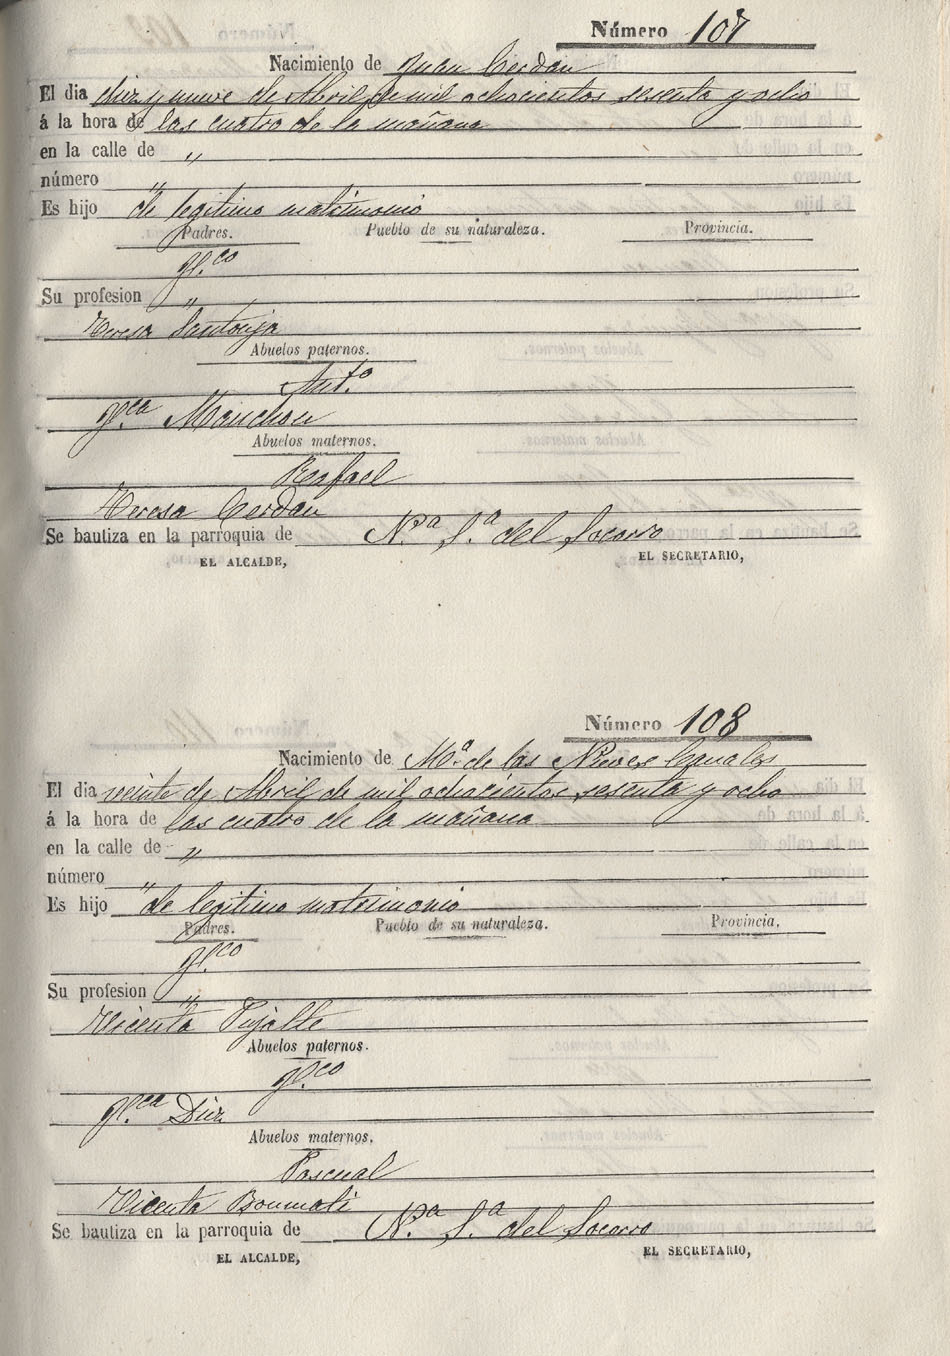 Número 107
Nacimiento de Juan Cerdan
El dia diez y nueve de Abril de mil ochocientos sesenta y ocho
á la hora de las cuatro de la mañana
en la calle de "
número "
Es hijo de legitimo matrimonio
Padres. Pueblo de su naturaleza. Provincia.
Su profesion "
Teresa Santonja
Abuelos paternos.
Ant.º
Manchon
Abuelos maternos.
Rafael
Teresa Cerdan
Se bautiza en la parroquia de N.ª S.ª del Socorro
EL ALCALDE, EL SECRETARIO,
Número 108
Nacimiento de M.ª de las Nieves
El dia veinte de Abril de mil ochocientos sesenta y ocho
á la hora de las cuatro de la mañana
en la calle de "
número "
Es hijo de legitimo matrimonio
Padres. Pueblo de su naturaleza. Provincia.
Su profesion "
Vicenta Pujalte
Abuelos paternos.
Diez
Abuelos maternos.
Pascual
Vicenta Bonmati
Se bautiza en la parroquia de N.ª S.ª del Socorro
EL ALCALDE, EL SECRETARIO,